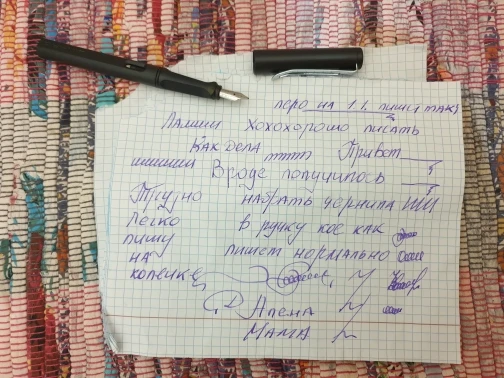 перо на 1.1. пишет так
Ламии Хохохорошо писать
Как дела тттт Привет
шшшшш Вроде получилось
Трудно набрать чернила шш
Легко в ручку кое как
пишу пишет нормально
на
копейке
Алена
Мама